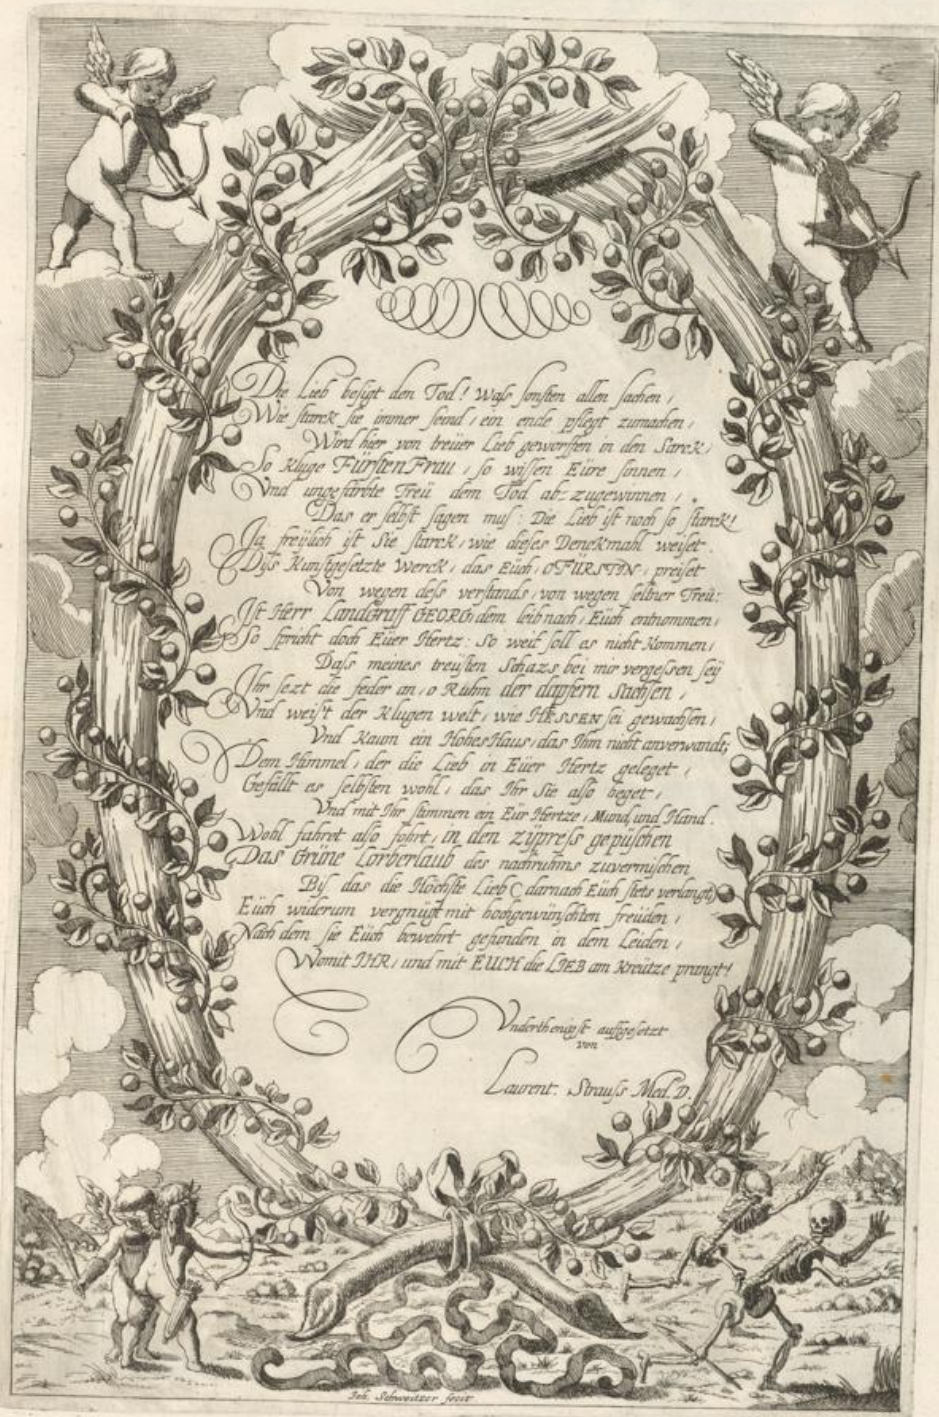 Die Lieb besigt den Tod! Waſs sonsten allen sachen,
Wie starck sie immer seind, ein ende pflegt zumachen,
Wird hier von treüer Lieb geworffen in den Sarck,
So Kluge FürstenFrau, so wissen Eüre sinnen,
Vnd ungefärbte Treü dem Tod ab-zugewinnen,
Das er selbst sagen muſ: Die Lieb ist noch so starck!
Ja freÿlich ist Sie starck, wie dieses Denckmahl weiset.
Diſs Kunstgesetzte Werck, das Euch, O FÜRSTIN, preiset
Von wegen deſs verstands, von wegen selbner Treü:
Ist Herr Landgraff GEORG, dem leib nach, Euch entnommen,
So spricht doch Eüer Hertz: So weit soll es nicht Kommen,
Daſs meines treüsten Schazs bei mir vergessen seÿ
Ihr sezt die feder an, o Ruhm der dapfern Sachsen,
Vnd weist der Klugen welt, wie HESSEN sei gewachsen,
Vnd Kaum ein HohesHaus, das Ihm nicht anverwandt;
Dem Himmel, der die Lieb in Eüer Hertz geleget,
Gefällt es selbsten wohl, das Ihr Sie also heget,
Vnd mit Ihr stimmen ein Eür Hertze, Mund, und Hand.
Wohl fahret also fohrt, in den zÿpreſs gepüschen
Das Grüne Lorberlaub des nachruhms zuvermischen
Biſ das die Höchste Lieb (darnach Euch stets verlangt)
Eüch widerum vergnügt mit hochgewünschten freüden,
Nach dem sie Eüch bewehrt gefunden in dem Leiden,
Womit IHR, und mit EUCH die LIEB am Kreütze prangt!
Vnderthenigst auffgesetzt
von
Laurent. Strauſs Med. D.
Joh. Schweitzer fecit